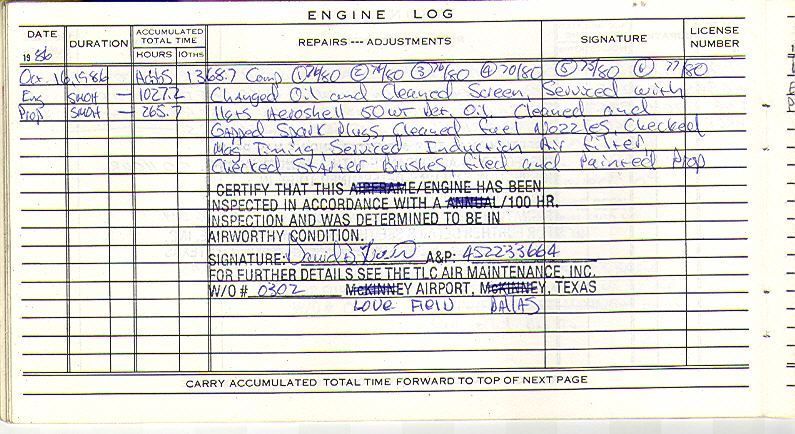 ENGINE LOG
DATE 1986 DURATION ACCUMULATED TOTAL TIME HOURS 10THS REPAIRS --- ADJUSTMENTS SIGNATURE LICENSE NUMBER
Oct. 16, 1986 1368.7 Comp ① 76/80 ② 76/80 ③ 76/80 ④ 70/80 ⑤ 75/80 ⑥ 77/80
Eng SMOH — 1027.2 Changed Oil and Cleaned Screen, Serviced with
Prop SMOH — 265.7 Aeroshell 50wt Det. Oil. Cleaned and
Gapped Spark Plugs, Cleaned Fuel Nozzles, Checked
Mag Timing Serviced Induction Air Filter,
Checked Starter Brushes, Filed and Painted Prop
I CERTIFY THAT THIS AIRFRAME/ENGINE HAS BEEN
INSPECTED IN ACCORDANCE WITH A ANNUAL/100 HR.
INSPECTION AND WAS DETERMINED TO BE IN
AIRWORTHY CONDITION.
SIGNATURE: David A&P: 452233664
FOR FURTHER DETAILS SEE THE TLC AIR MAINTENANCE, INC.
W/O # 0302 McKINNEY AIRPORT, McKINNEY, TEXAS
LOVE FIELD DALLAS
CARRY ACCUMULATED TOTAL TIME FORWARD TO TOP OF NEXT PAGE